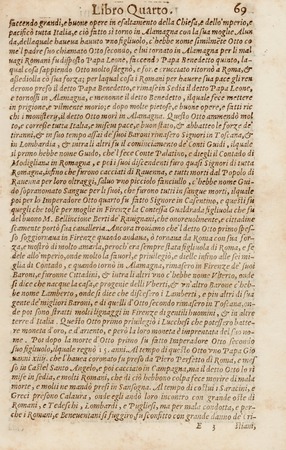 Libro Quarto. 69
facendo grandi, e buone opere in esaltamento della Chiesa, e dello'mperio, e
pacificò tutta Italia, e ciò fatto si tornò in Alamagna con la sua moglie, Alun
da, della quale haueua hauuto vno figliuolo, c'hebbe nome similmẽte Otto co
me'l padre fu chiamato Otto secondo, e lui tornato in Alamagna per li mal
uagi Romani fu disposto Papa Leone, facendo Papa Benedetto quinto, la
qual cosa sappiendo Otto molto sdegnò, e sopra corrucciato ritornò a Roma, &
assediolla co sua forza; per la qual cosa i Romani per hauere sua pace gli ren
derono preso il detto Papa Benedetto, e rimise in Sedia il detto Papa Leone,
e tornossi in Alamagna, e menonne il detto Benedetto, il quale fece mettere
in prigione, e vilmente morire; e dopo molte prosperose, e buone opere, e fatti ric
chi i monisteri, il detto Otto morì in Alamagna. Questo Otto ammendò mol
to, e corresse tutta Italia, e misela in pace, e buono stato, & abbatteo le forze de'
tiranni, & al suo tempo assai de' suoi Baroni rimasero Signori in Toscana, &
in Lombardia, & intra li altri fu il cominciamento de' Conti Guidi, il quale
il primo hebbe nome Guido, che'l fece conte Palatino, e diegli il Contado di
Modigliana in Romagna, e poi i suoi discendenti furo quasi Signori di tutta
Romagna, infino che furono cacciati di Rauenna, e tutti morti dal Popolo di
Rauenna per loro oltraggi, saluo vno piccolo fanciullo, c'hebbe nome Gui
do soprannomato Sangue per li suoi, che furono tutti in sangue morti, il quale
poi per lo Imperadore Otto quarto fu fatto Signore in Casentino, e questi fu
quegli che tolse per moglie in Firenze la Contessa Gualdrada figliuola che fu
del buono M. Bellincione Berti de' Rauignani, che onoreuolmente, e costuma
tamente portò sua caualleria. Ancora trouiamo che'l detto Otto primo spes
so soggiornaua in Firenze quando andaua, ò tornaua da Roma con sua for
za, e mostrò di molto amarla, perocch'era sempre stata figliuola di Roma, e fe
dele allo'mperio, onde molto la fauorì, e priuilegiò, e dielle infino alle sei mi
glia di Contado, e quando tornò in Alamagna, rimasero in Firenze de' suoi
Baroni, e furonne Cittadini, & intra li altri vno c'hebbe nome Vberto, onde
si dice che nacque la casa, e progenie delli Vberti, & vn'altro Barone c'heb
be nome Lamberto, onde si dice che discesero i Lamberti, e poi altri di sua
gente de' migliori Baroni, e di quelli d'Otto secondo rimasero in Toscana, on
de poi sono stratti molti lignaggi in Firenze di gentili huomini, & in altre
terre d'Italia. Questo Otto primo priuilegiò i Lucchesi che potessero batte-
re moneta d'oro, e d'argento, e però la loro moneta è impronta del suo no
me. Poi dopo la morte d'Otto primo fu fatto Imperadore Otto secondo
suo figliuolo, loquale regnò 15. anni. Al tempo di questo Otto vno Papa Gio
uanni xiij. che l'haueua coronato fu preso da Pietro Perfetto di Roma, e mes
so in Castel Santo Angelo, e poi cacciato in Campagna, ma il detto Otto il ri
mise in sedia, e molti Romani, che di ciò hebbono colpa fece morire di mala
morte, e molti ne mandò presi in Sansogna. Al tempo di costui i Saracini, e
Greci presono Calaura, onde egli andò loro incontro con grande oste di
Romani, e Tedeschi, Lombardi, e Pugliesi, ma per mala condotta, e per-
che i Romani, e Beneuentani si fuggiro, fu sconfitto con grande danno de' cri-
E 3 stiani,